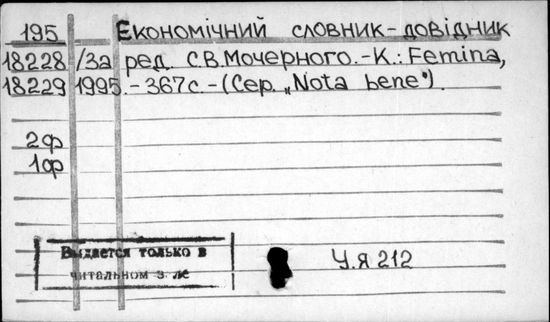 195 Економічний словник-довідник
18228 /За ред. С.В.Мочерного.-К.: Femina,
18229 1995.-367с.-(Сер. „Nota bene").
2ф
1ф
Выдается только в
читальном з ле
У.я 212